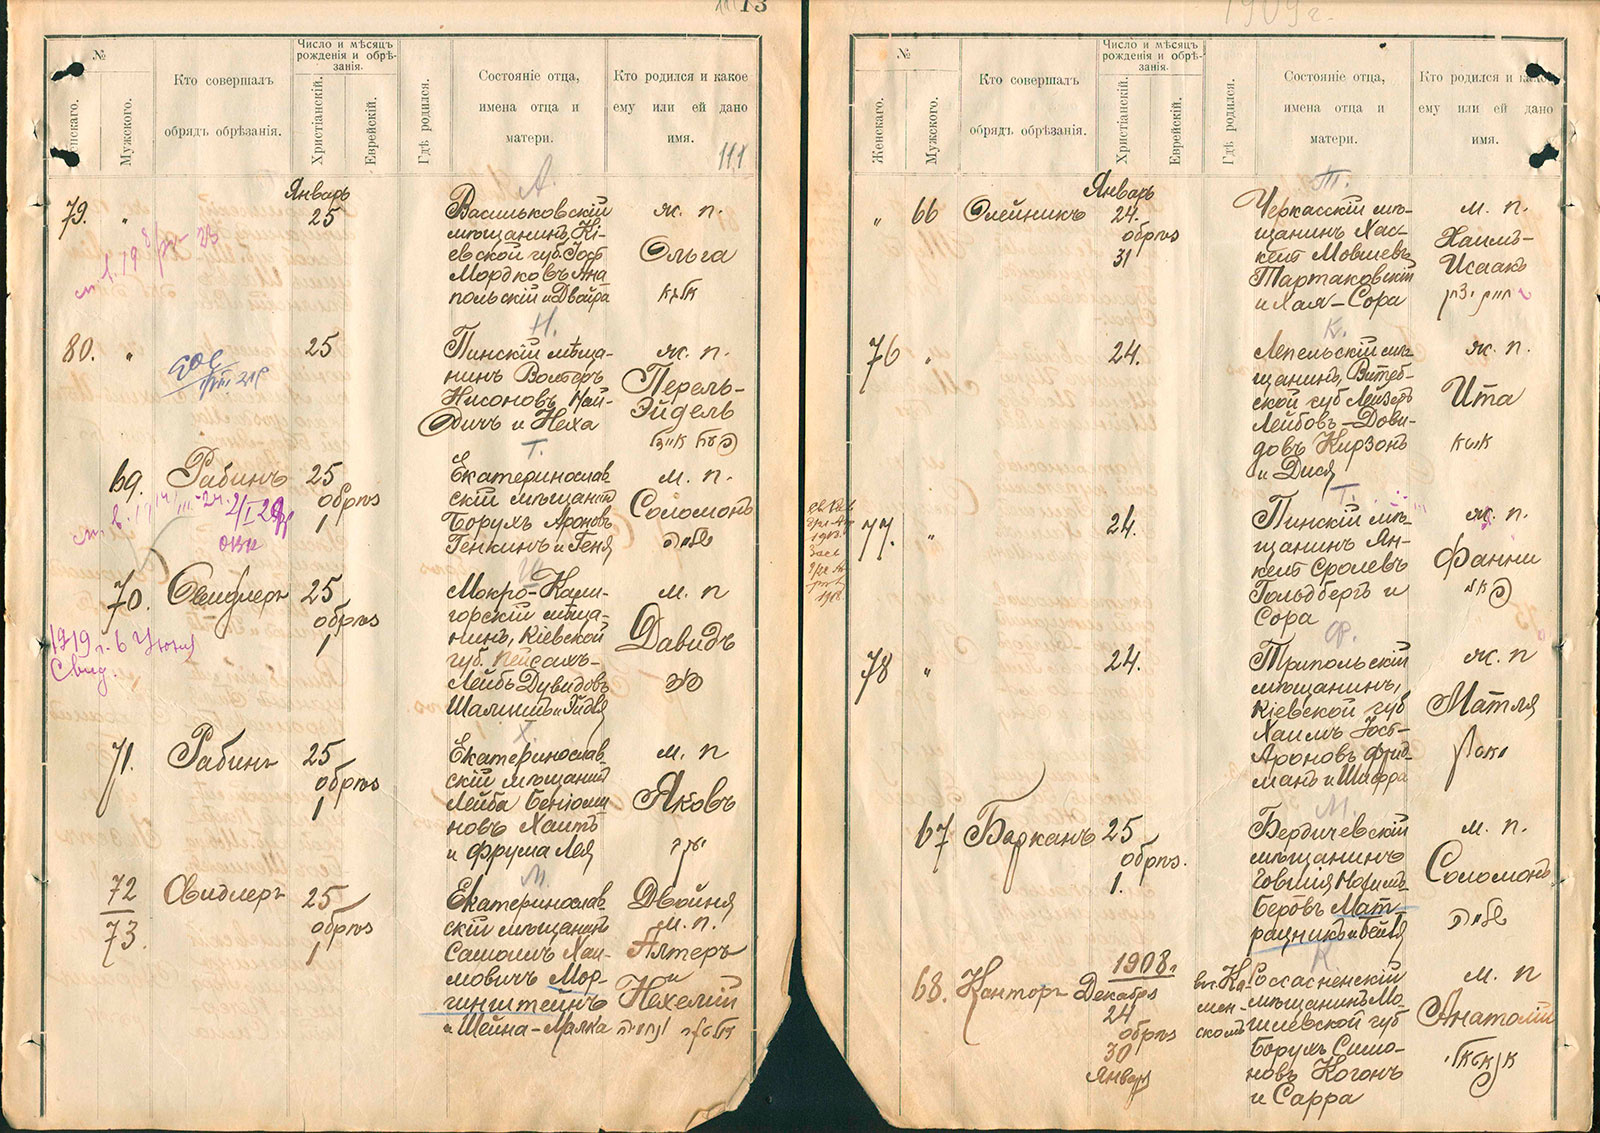 13
№
Женскаго.
Мужского.
Кто совершалъ
обрядъ обрѣзанія.
Число и мѣсяцъ
рожденія и обрѣ-
занія.
Христіанскій.
Еврейскій.
Гдѣ родился.
Состояніе отца,
имена отца и
матери.
Кто родился и какое
ему или ей дано
имя.
111
А.
Январь
79. " 25
Васильковскій
мѣщанинъ, Кі-
евской губ. Іось
Мордковъ Ана
польскій и Двойра
ж. п.
Ольга
Н.
80. " 25
Пинскій мѣща-
нинъ Волтеръ
Нисоновъ Най-
дичъ и Неха
ж. п.
Перель-
Эйдель
Г.
69. Рабинъ 25
обрѣз
1
Екатеринослав
скій мѣщанинъ
Борухъ Ароновъ
Генкинъ и Геня
м. п.
Соломонъ
שלמה
70. Свидлеръ 25
обрѣз
1
1919 г. 6 Іюня
Свид.
Мокро-Кали-
горскій мѣща-
нинъ, Кіевской
губ. Пейсахъ-
Лейбъ Дувидовъ
м. п
Давидъ
דוד
Х.
71. Рабинъ 25
обрѣз
1
Екатеринослав-
скій мѣщанинъ
Лейба Беніоми
новъ Хаитъ
и Фрума Лея
м. п
Яковъ
יעקב
М.
72
73. Свидлеръ 25
обрѣз
1
Екатеринослав-
скій мѣщанинъ
Самоилъ Хаи-
мовичъ Мор-
гинштейнъ
и Шейна-Малка
Двойня
м. п.
Алтеръ
и
Нехемій
1909 г.
№
Женскаго.
Мужского.
Кто совершалъ
обрядъ обрѣзанія.
Число и мѣсяцъ
рожденія и обрѣ-
занія.
Христіанскій.
Еврейскій.
Гдѣ родился.
Состояніе отца,
имена отца и
матери.
Кто родился и какое
ему или ей дано
имя.
Т.
Январь
" 66 Олейникъ 24.
обрѣз
31
Черкасскій мѣ-
щанинъ Хас-
кель Мовшевъ
Тартаковскій
и Хая-Сора
м. п.
Хаимъ-
Исаакъ
חיים יצחק
К.
76 " 24.
Лепельскій мѣ-
щанинъ, Витеб-
ской губ Лейзеръ
Лейбовъ-Дови-
довъ Кирзонъ
и Дися
ж. п.
Ита
איטא
Г.
77. " 24.
Пинскій мѣ-
щанинъ Ян-
кель Сролевъ
Гольдбергъ и
Сора
ж. п.
Фанни
Ф.
78 " 24.
Трипольскій
мѣщанинъ,
Кіевской губ
Хаимъ Іось-
Ароновъ Фрид-
манъ и Шифра
ж. п
Матля
М.
67 Барканъ 25
обрѣз.
1.
Бердичевскій
мѣщанинъ
Беровъ Мат-
рацникъ и Бейля
м. п.
Соломонъ
שלמה
К.
1908 г.
68. Канторъ Декабрь
24
обрѣз
30
Январь
въ Ка-
мен-
скомъ
Россасненскій
мѣщанинъ Мо-
гилевской губ
Борухъ Симо-
новъ Когонъ
и Сарра
м. п
Анатолій